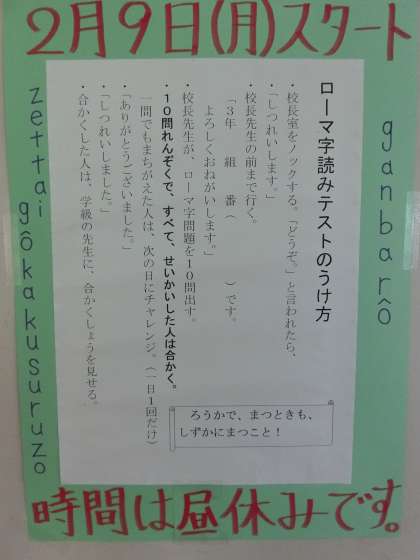 2月9日(月)スタート
ganbarô
ローマ字読みテストのうけ方
・校長室をノックする。「どうぞ。」と言われたら、
「しつれいします。」
・校長先生の前まで行く。
「3年　組　番（　　　　）です。
よろしくおねがいします。」
・校長先生が、ローマ字問題を10問出す。
・10問れんぞくで、すべて、せいかいした人は合かく。
一問でもまちがえた人は、次の日にチャレンジ。（一日1回だけ）
・「ありがとうございました。」
・「しつれいしました。」
・合かくした人は、学級の先生に、合かくしょうを見せる。
ろうかで、まつときも、
しずかにまつこと！
zettai gôkakusuruzo
時間は昼休みです。